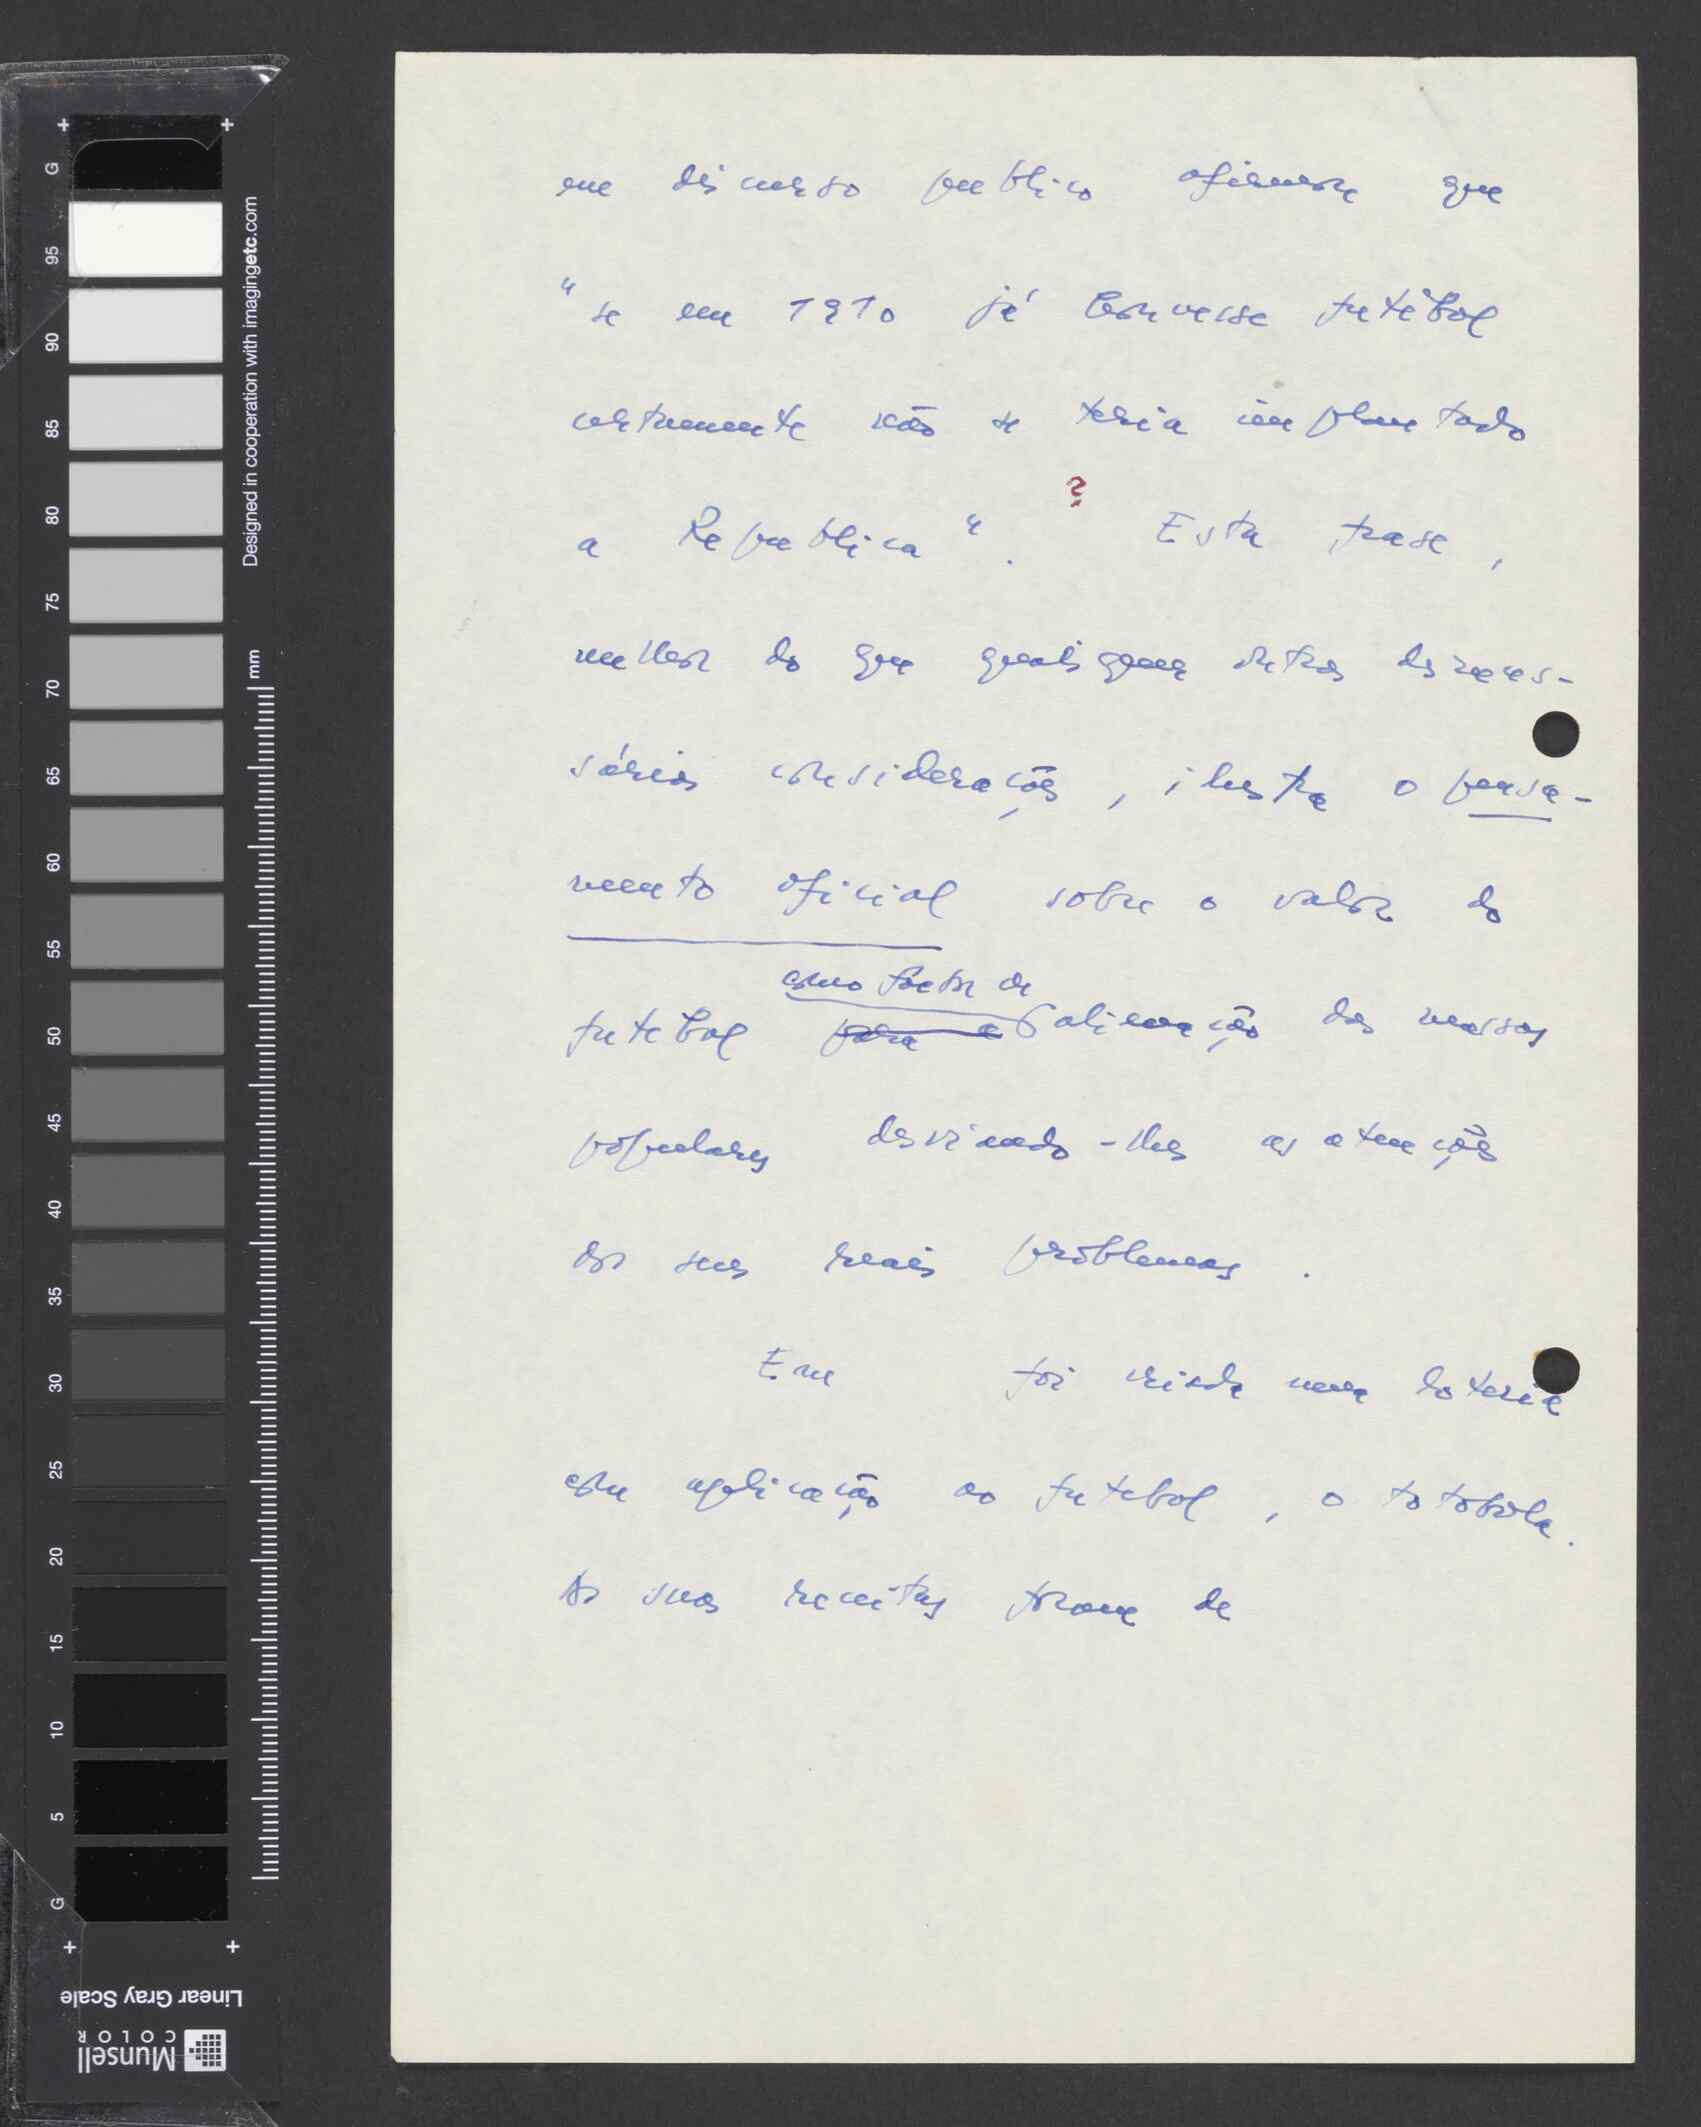 em discurso publico afirmou que
"se em 1910 já houvesse futebol
certamente não se teria implantado
a Republica". ? Esta frase,
melhor do que quaisquer outras desneces-
sárias considerações, ilustra o pensa-
mento oficial sobre o valor do
como factor de
futebol para a alienação das massas
populares desviando-lhes as atenções
dos seus reais problemas.
Em foi criada uma lotaria
com aplicação ao futebol, o totobola.
As suas receitas foram de
G 95 90 85 80 75 70 65 60 55 50 45 40 35 30 25 20 15 10 5 G
Designed in cooperation with imagingetc.com
mm
Linear Gray Scale
Munsell
COLOR